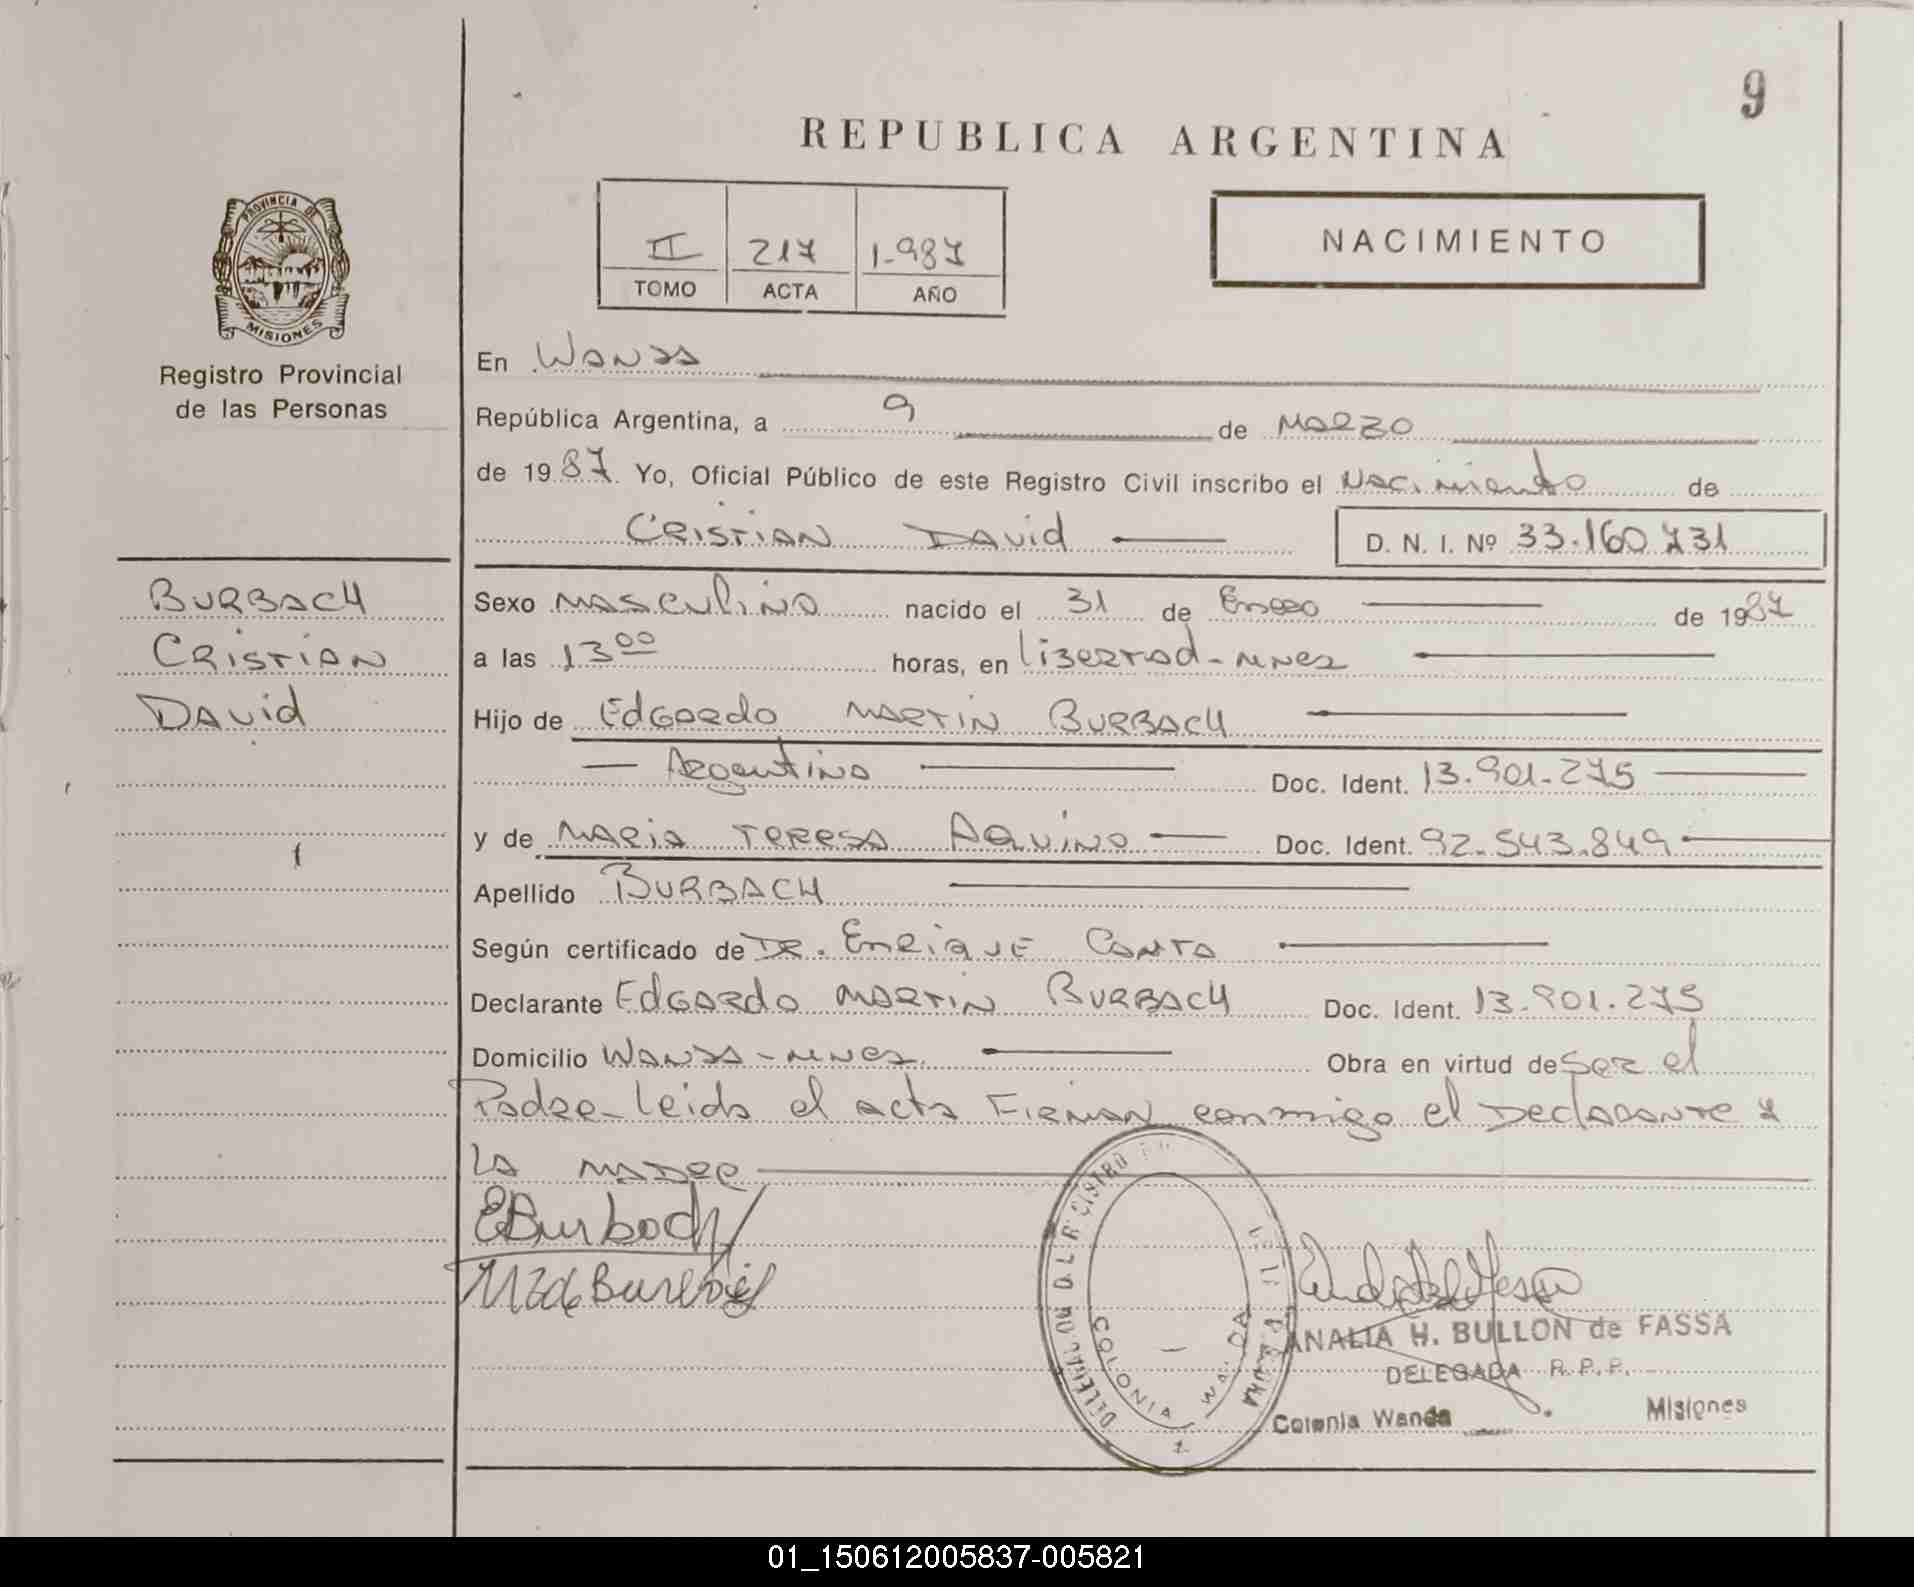 9
REPUBLICA ARGENTINA
PROVINCIA DE
MISIONES
Registro Provincial
de las Personas
II 217 1.987
TOMO ACTA AÑO
NACIMIENTO
En Wanda
República Argentina, a 9 de Marzo
de 1987. Yo, Oficial Público de este Registro Civil inscribo el Nacimiento de
CRISTIAN DAVID D. N. I. Nº 33.160.731
BURBACH
CRISTIAN
DAVID
Sexo Masculino nacido el 31 de Enero de 1987
a las 13 00 horas, en Libertad - Mnes
Hijo de Edgardo Martin Burbach
Argentino Doc. Ident. 13.901.275
y de Maria Teresa Aquino Doc. Ident. 92.543.849
Apellido BURBACH
Según certificado de Dr. Enrique Conto
Declarante Edgardo Martin Burbach Doc. Ident. 13.901.275
Domicilio Wanda - Mnes. Obra en virtud de ser el
Padre - Leida el acta Firman conmigo el Declarante y
La Madre
EBurbach
ANALIA H. BULLON de FASSA
DELEGADA R.P.P.
Colonia Wanda Misiones
COLONIA WANDA
01_150612005837-005821